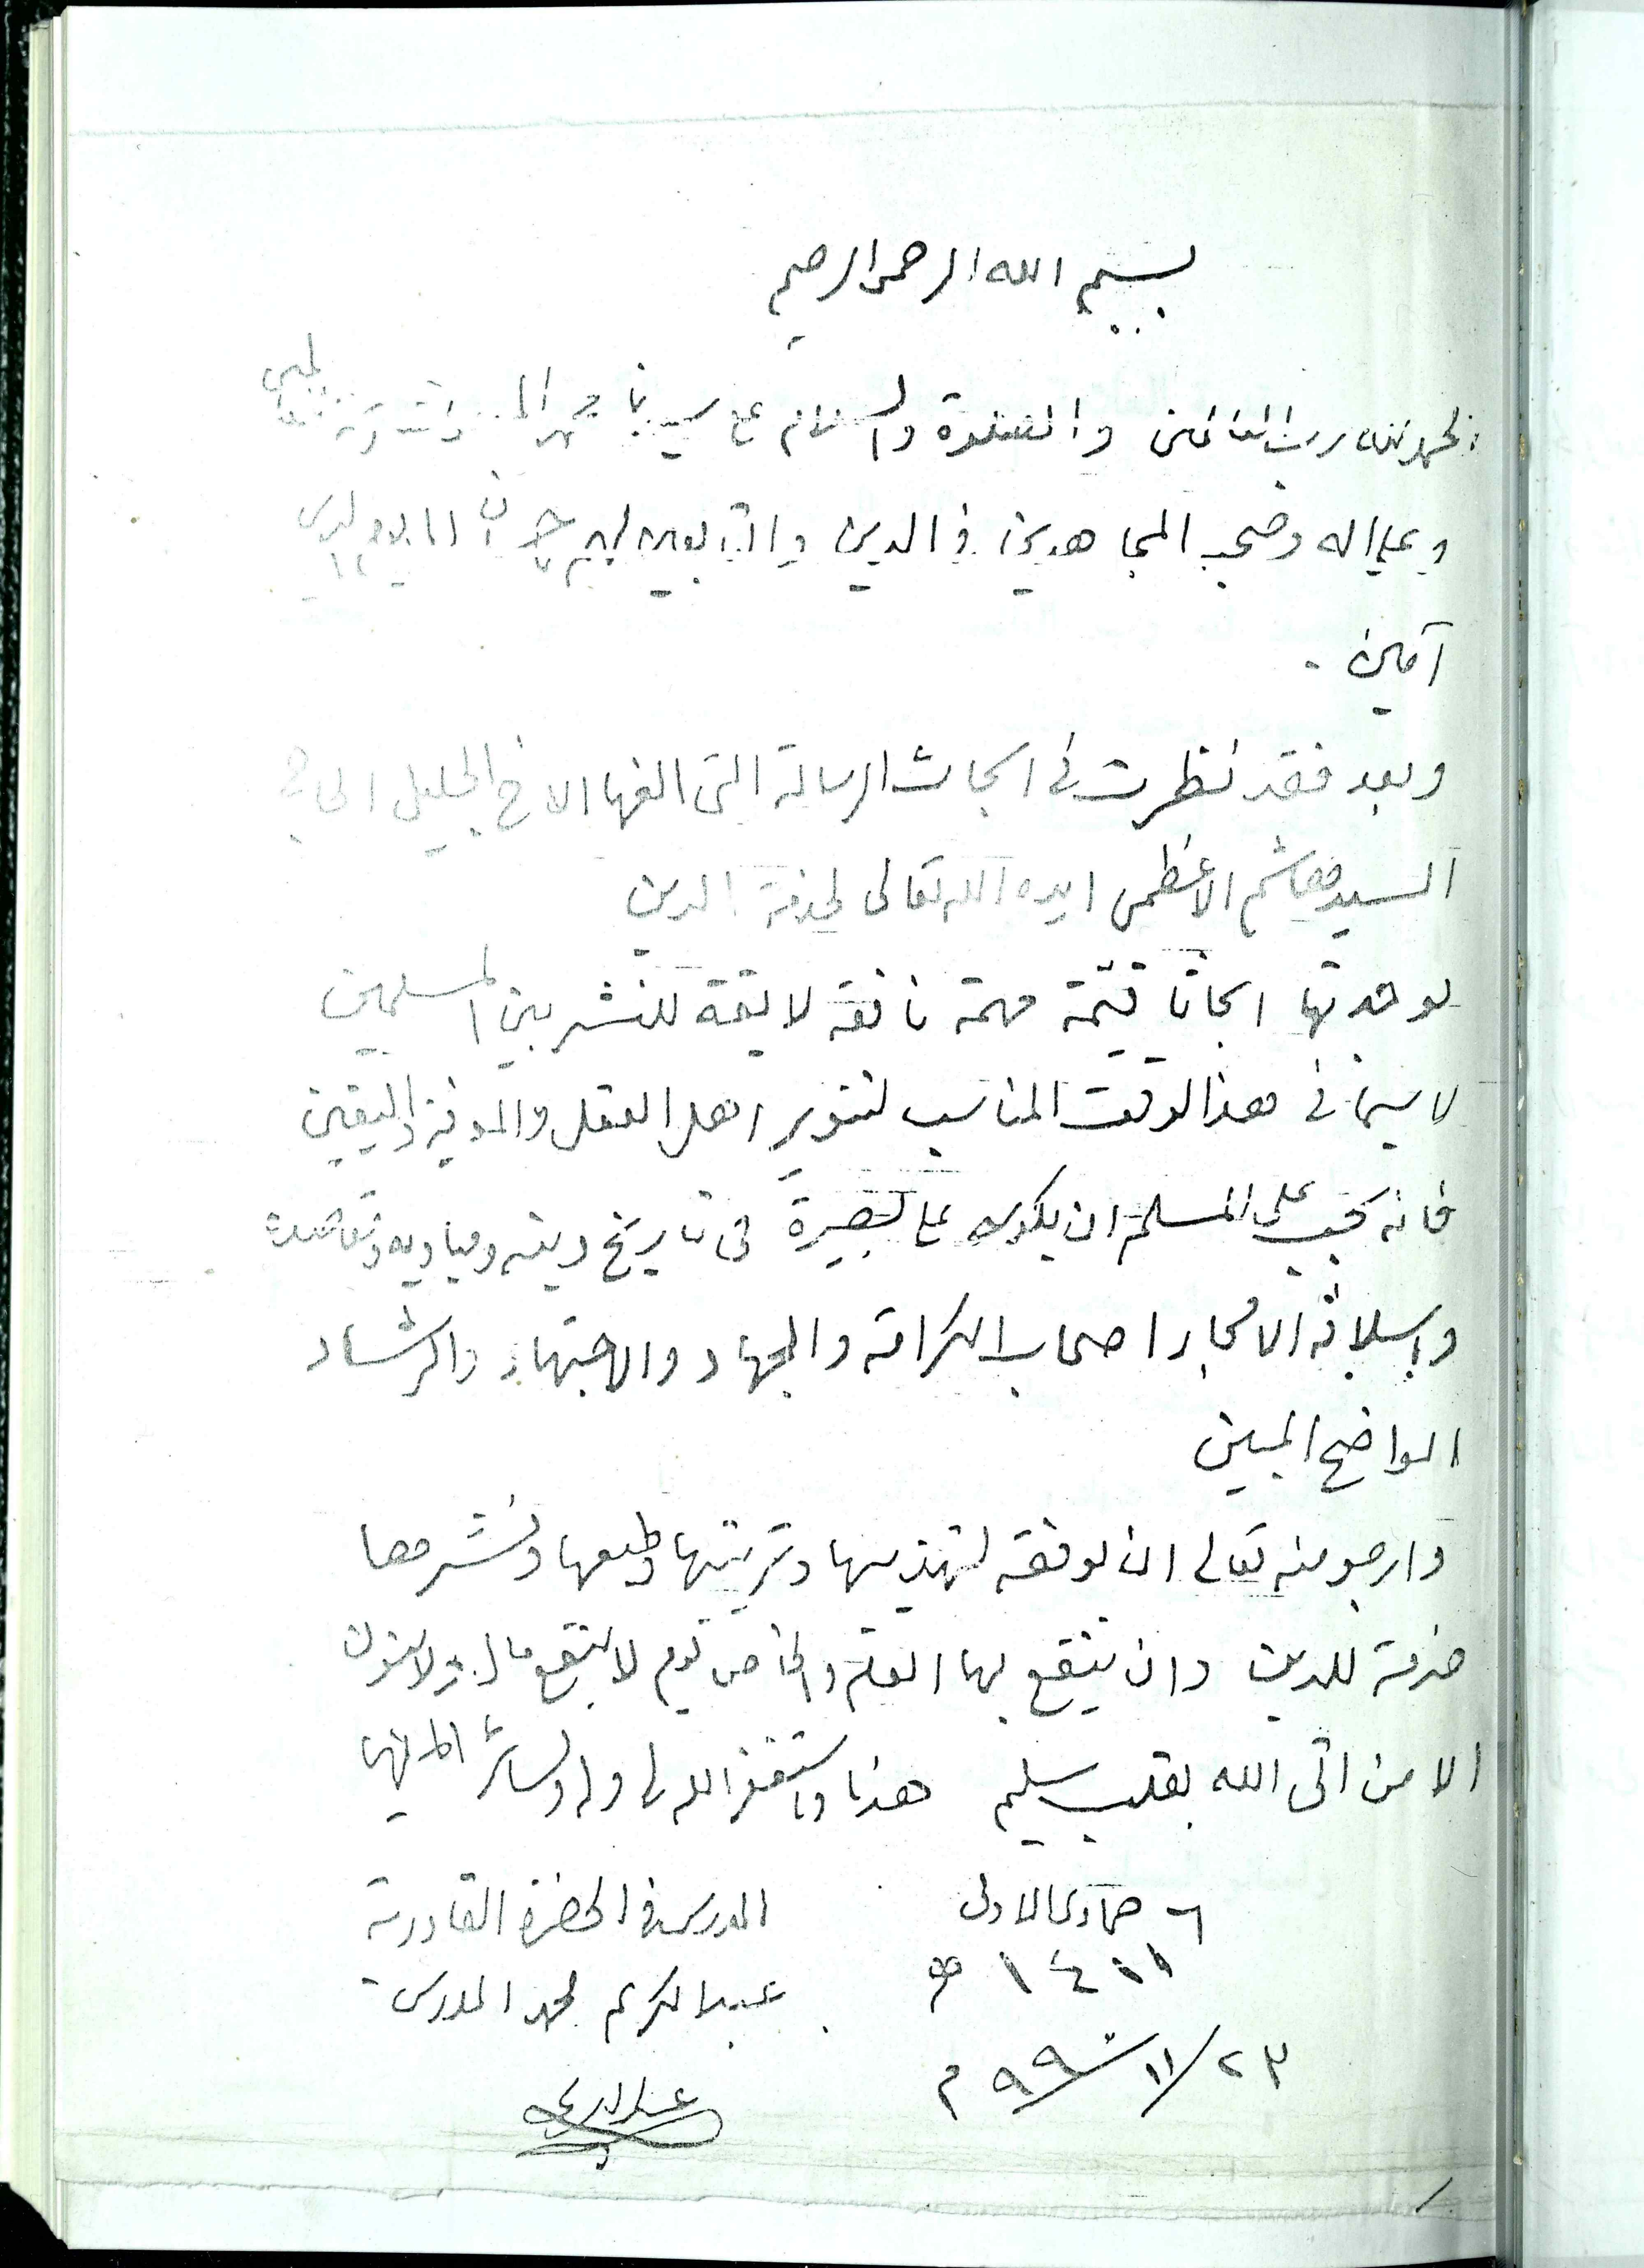 بسم الله الرحمن الرحيم
الحمد لله رب العالمين والصلوة والسلام على سيدنا محمد
وعلى اله وصحبه المجاهدين في الدين والتابعين لهم باحسان الى يوم الدين
آمين .
وبعد فقد نظرت في ابحاث الرسالة التى الفها الاخ الجليل الحاج
السيد هاشم الاعظمى ايده الله تعالى لخدمة الدين
فوجدتها ابحاثا قيّمة مهمة نافعة لائقة للنشر بين المسلمين
لا سيما فى هذا الوقت المناسب لتنوير اهل العقل والمعرفة واليقين
فانه يجب على المسلم ان يكون على بصيرة فى تاريخ دينه ومباديه وعقائده
واسلافه الامجاد اصحاب الكرامة والجهاد والاجتهاد والرشاد
الواضح المبين
وارجو منه تعالى ان يوفقه لتهذيبها وترتيبها وطبعها ونشرها
خدمة للدين وان ينتفع بها العام والخاص يوم لا ينفع مال ولا بنون
الا من اتى الله بقلب سليم هذا واستغفر الله لى وله ولسائر
٦ جمادى الاولى
١٤١١ هـ
٢٣/١١/٩٩٠ م
المدرس في الحضرة القادرية
عبد الكريم محمد المدرس
عبد الكريم